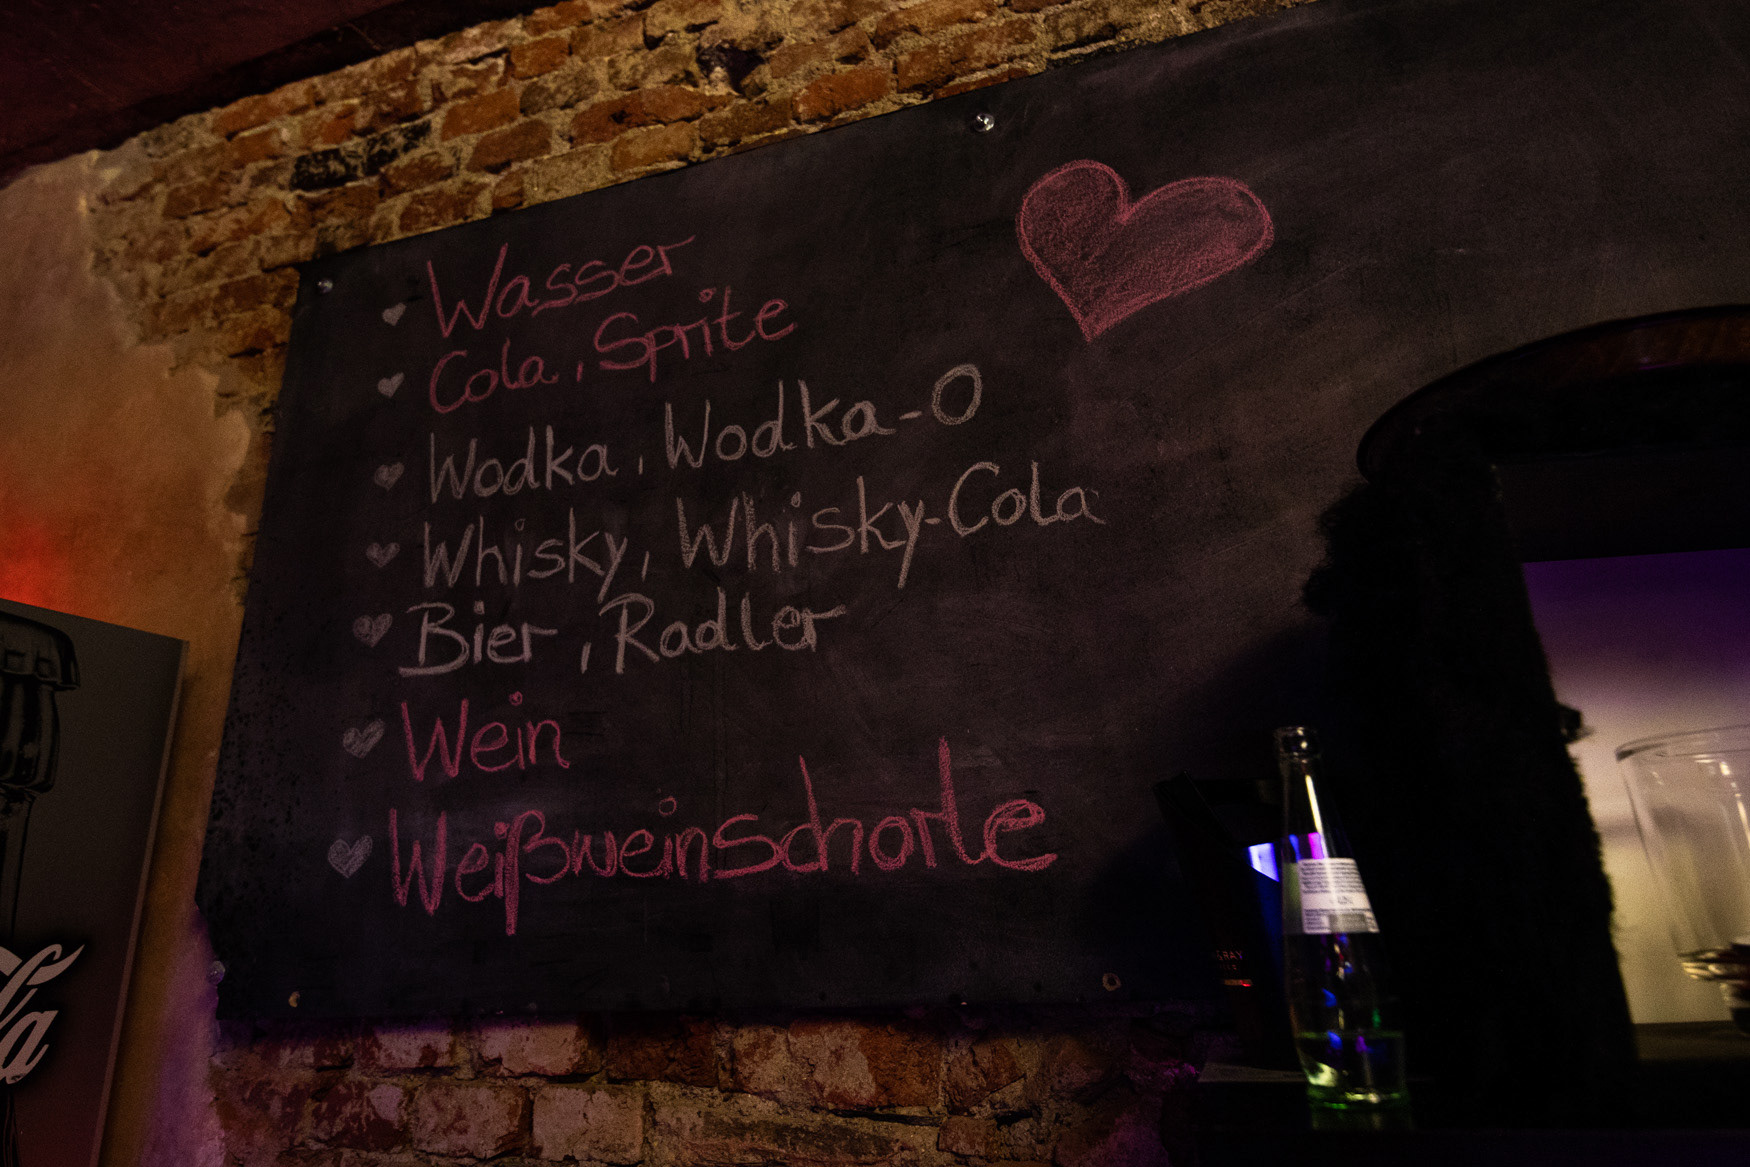 Wasser
Cola, Sprite
Wodka, Wodka-O
Whisky, Whisky-Cola
Bier, Radler
Wein
Weißweinschorle